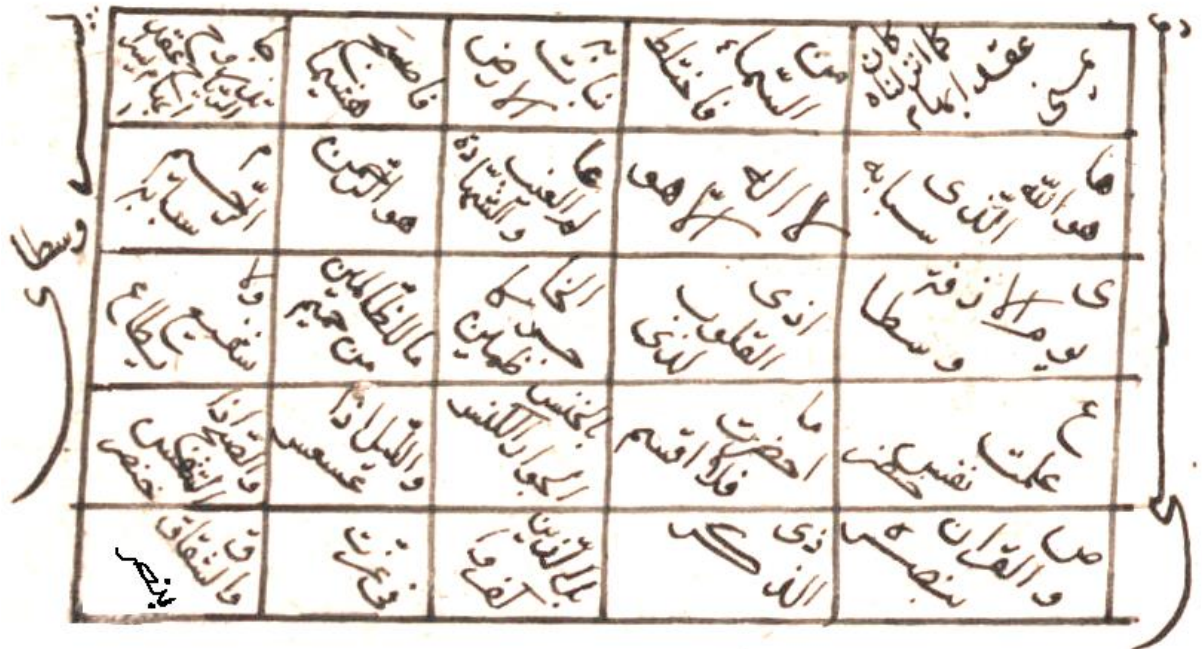 كما انزلناه
من السماء فاختلط
به نبات الارض
فاصبح هشيما
الرياح
ها هو الله الذى سبابه
لا اله الا هو
عالم الغيب والشهادة
هو الرحمن
الرحيم سبابه
ى يوم الازفة وسطا
اذى القلوب لذى
الحناجر كاظمين
ما للظالمين من حميم
ولا شفيع يطاع
وسطا
ع علمت نفس خنصر
ما احضرت فلا اقسم
بالخنس الجوار الكنس
والليل اذا عسعس
والصبح اذا تنفس خنصر
ص والقران بنصر
ذى الذكر
بل الذين كفروا
فى عزت
والشقاق بنصر